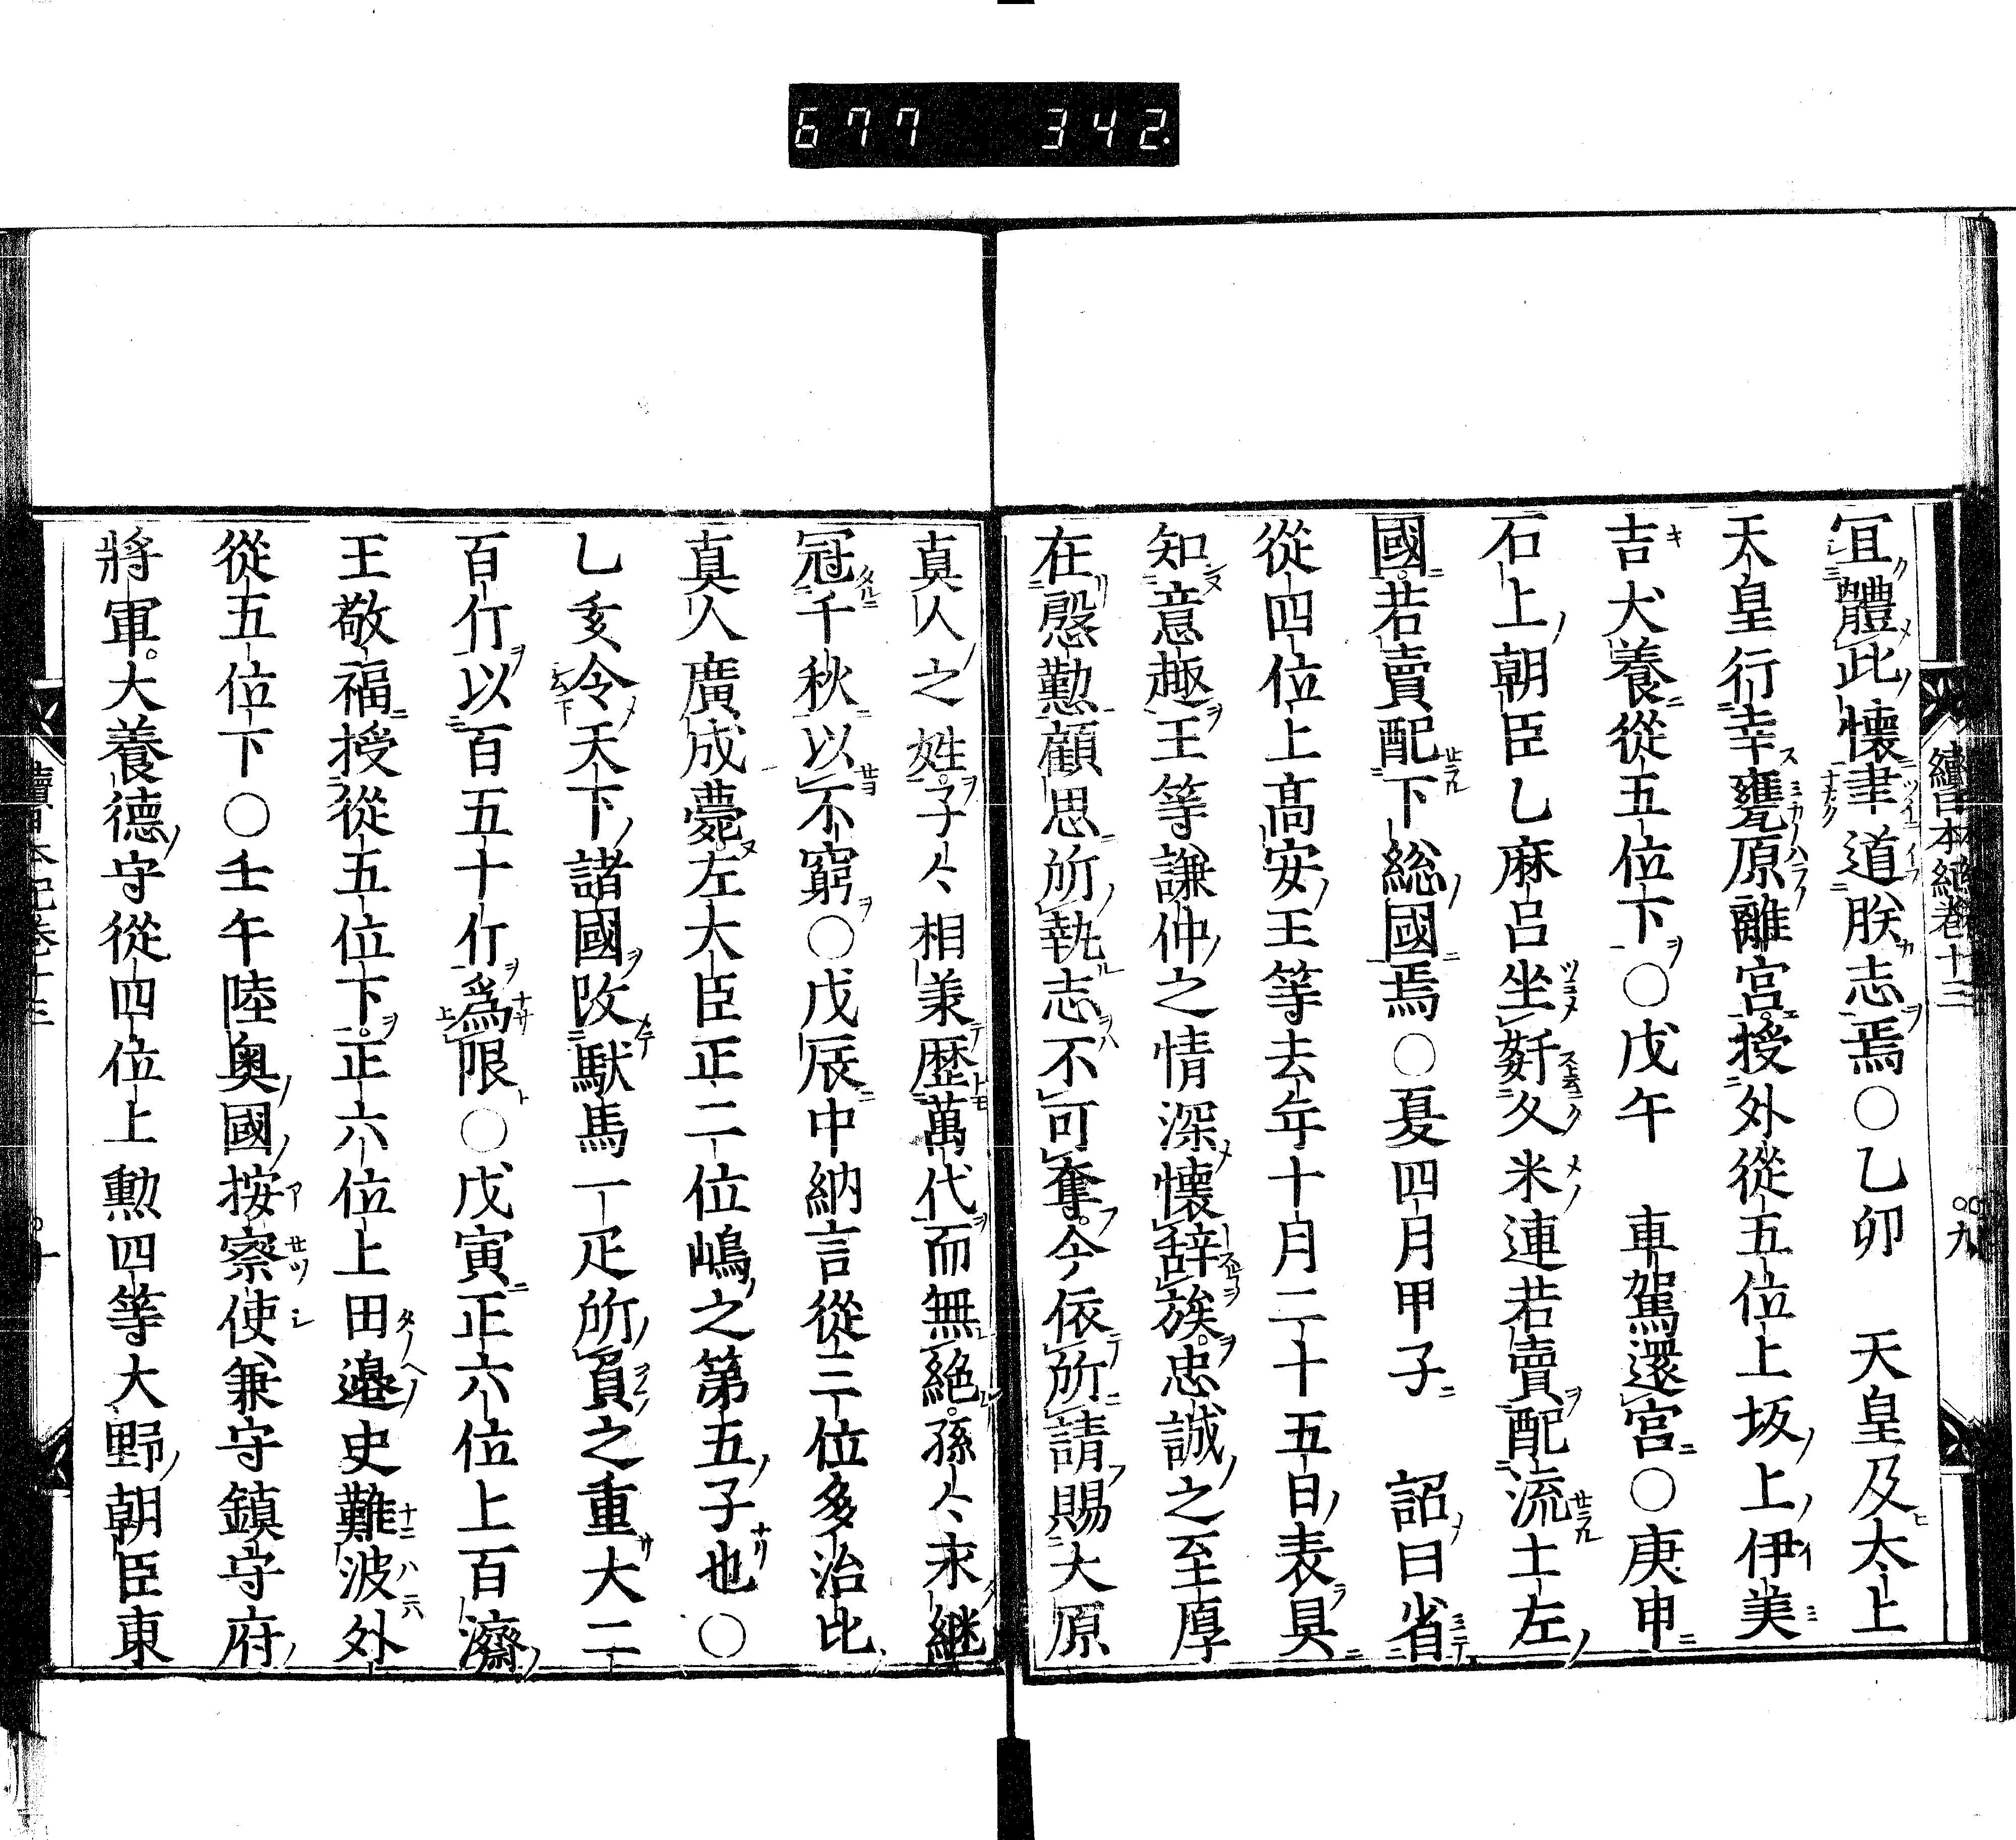 677 342.
續日本紀卷十三 九
宜體此懷聿道朕志焉〇乙卯 天皇及太上
天皇行幸甕原離宮授外從五位上坂上伊美
吉犬養從五位下〇戊午 車駕還宮〇庚申
石上朝臣乙麻呂坐姧久米連若賣配流土左
國若賣配下総國焉〇夏四月甲子 詔曰省
從四位上高安王等去年十月二十五日表具
知意趣王等謙仲之情深懷辭族忠誠之至厚
在慇懃顧思所執志不可奪今依所請賜大原
真人之姓子〻相羕歴萬代而無絶孫〻永継
冠千秋以不窮〇戊辰中納言從三位多治比
真人廣成薨左大臣正二位嶋之第五子也〇
乙亥令天下諸國改馱馬一疋所負之重大二
百斤以百五十斤爲限〇戊寅正六位上百濟
王敬福授從五位下正六位上田邉史難波外
從五位下〇壬午陸奥國按察使兼守鎮守府
將軍大養德守從四位上勲四等大野朝臣東
續日本紀卷十三 十